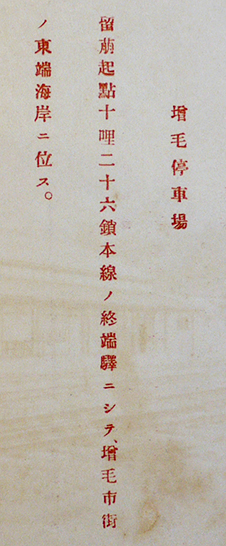 增毛停車場
留萠起點十哩二十六鎖本線ノ終端驛ニシテ、增毛市街
ノ東端海岸ニ位ス。